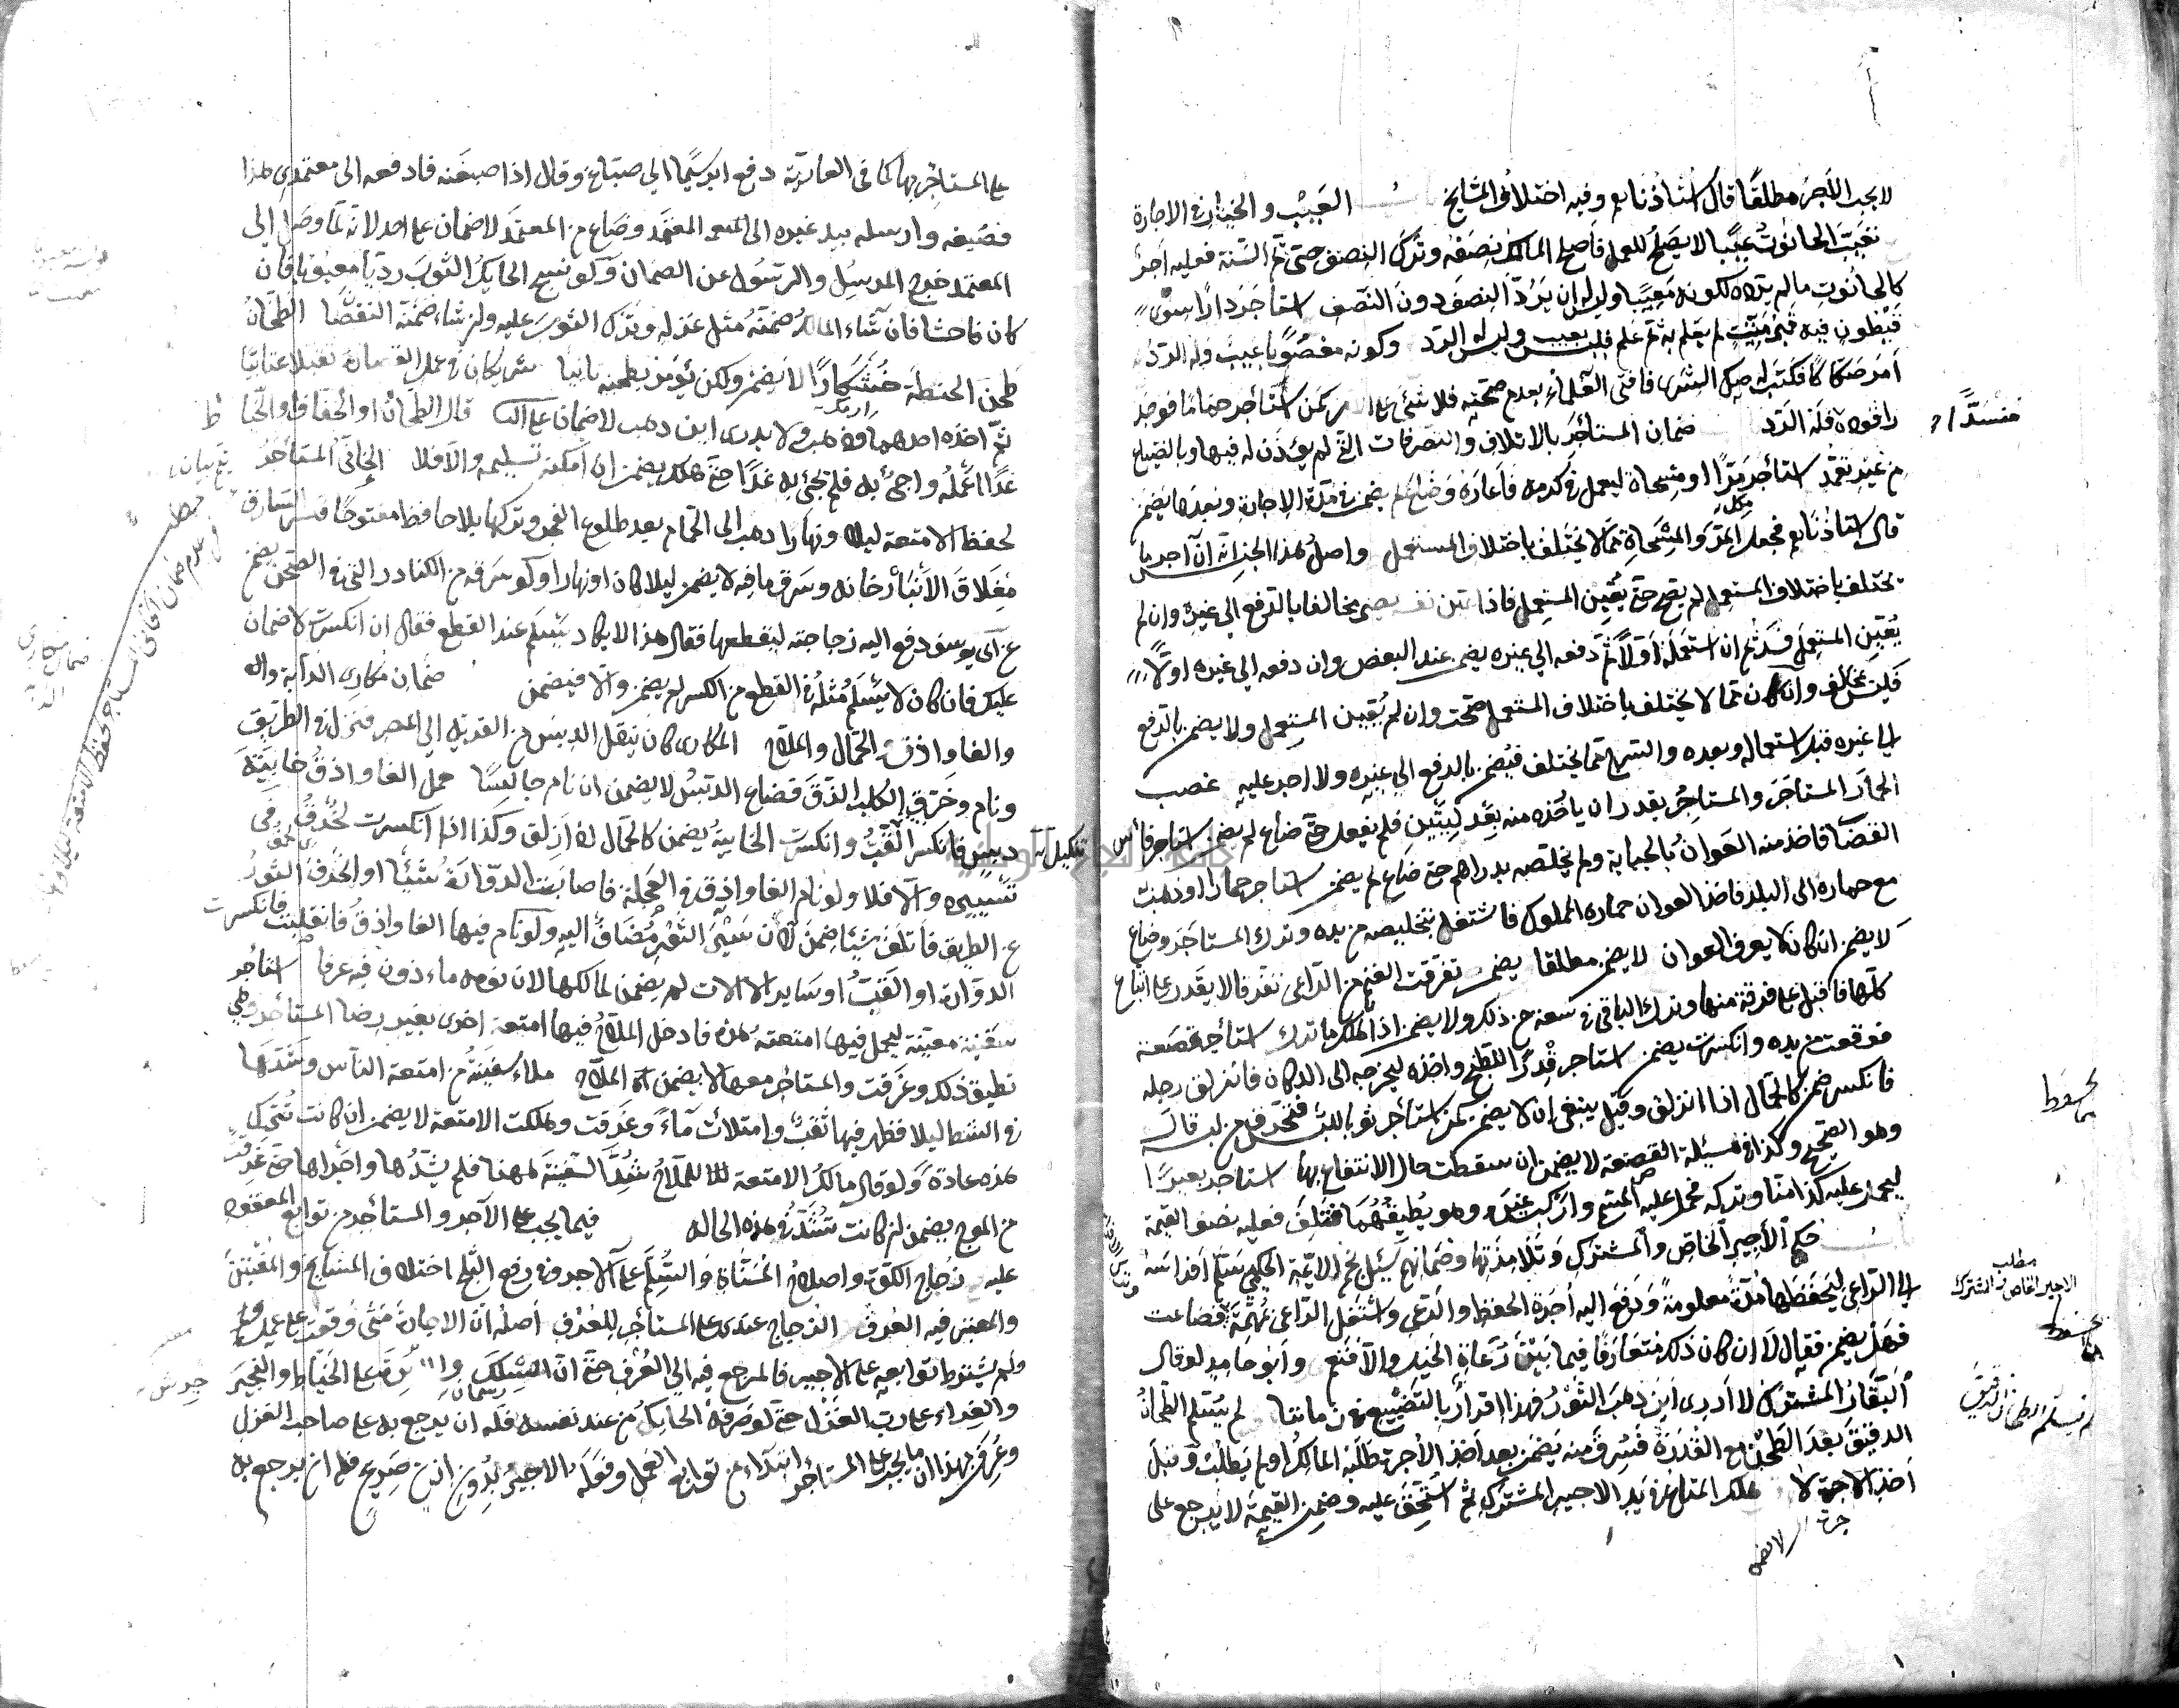 لا يجب الأجر مطلقا قال استاذنا بع وفيه اختلاف المشايخ العيب والخيار في الاجارة
تعيب الحانوت عيبا لا يصلح للعمل فاصلح المالك نصفه وترك النصف حتى تم السنة فعليه اجر
كل الحانوت ما لم يرده لكونه معيبا وليس له ان يرد النصف دون النصف استأجر دارا سنة
فيظهر فيه لم يعلم به ثم علم فليس بعيب وليس له الرد وكونه عيب وله الرد
امر صكاكا فكتب له صك الشرى فافتى العلماء بعدم صحته فلا شئ على كمن استأجر فوجد
فله الرد ضمان المستأجر بالاتلاف والتصرفات التى لم يؤذن له فيها وبالتضييع
من غير تعمد استأجر مرا او مسحاة ليعمل في كرمه فاعاره وضاع لم يضمن في مدة الاجارة وبعدها يضمن
قال استاذنا بع فجعل المر والمسحاة مما لا يختلف باختلاف المستعمل واصل هذا الجنس انه ان آجر ما
يختلف باختلاف المستعمل لم يصح حتى يعين المستعمل فاذا يصير مخالفا بالدفع الى غيره وان لم
يعين المستعمل فسد ثم ان استعمله اولا ثم دفعه الى غيره يضمن عند البعض وان دفعه الى غيره اولا
فليس بمخالف وان كان مما لا يختلف باختلاف المستعمل صحت وان لم يعين المستعمل ولا يضمن بالدفع
الى غيره قبل استعماله وبعده مما يختلف فيضمن بالدفع الى غيره ولا اجر عليه غصب
الحمار المستأجر والمستأجر يقدر ان يأخذه منه بعد فلم يفعل حتى ضاع لم يضمن استأجر فأس
القصاب فاخذ منه العوان بالجباية ولم يخلصه بدراهم حتى ضاع لم يضمن استأجر حمارا وذهب
مع حماره الى البلد فاخذ العوان حماره المملوك فاشتغل بتخليصه من يده وترك المستأجر وضاع
لا يضمن ان كان لا يعرف العوان لا يضمن مطلقا يضمن تفرقت الغنم من الراعى فرقا لا يقدر على اتباع
كلها فاقبل على فرقة منها وترك الباقى في سعة من ذلك ولا يضمن اذا هلك ما ترك استأجر قصعة
فوقعت من يده وانكسرت يضمن استأجر قدرا للطبخ واخذه ليخرجه الى الدكان فانزلق رجله
فانكسر ضمن كالحمال اذا انزلق وقيل ينبغى ان لا يضمن كمن استأجر ثوبا للبس فتخرق من لبسه قال
وهو الصحيح وكذا في مسئلة القصعة لا يضمن ان سقطت حال الانتفاع بها استأجر بعيرا
ليحمل عليه كذا منا وتركه فحمل عليه المتاع واركب غيره وهو يطيقهما فتلف فعليه نصف القيمة
حكم الأجير الخاص والمشترك وتلامذتها وضمانهم سئل نجم الائمة الحكيمى سلم افراسه
الى الراعى ليحفظها مدة معلومة ودفع اليه اجرة الحفظ والرعى واشتغل الراعى بمهمة فضاعت
فهل يضمن فقال لا ان كان ذلك متعارفا فيما بين رعاة الخيل والا فنعم وابو حامد لو قال
البقار المشترك لا ادرى اين ذهب الثور فهذا اقرار بالتضييع في زماننا لم يسلم الطحان
الدقيق بعد الطحن مع القدرة فسرق منه يضمن بعد اخذ الأجرة طلبه المالك او لم يطلب وقبل
اخذ الاجرة لا هلك المتاع في يد الاجير المشترك ثم استحق عليه وضمن القيمة لا يرجع على
مطلب
الاجير الخاص والمشترك
لم يسلم الطحان الدقيق
على المستأجر بها كما في العارية دفع ابريسما الى صباغ وقال اذا صبغته فادفعه الى معتمدى هذا
فصبغه وارسله بيد غيره الى المعتمد وضاع من المعتمد لا ضمان على احد لانه لما وصل الى
المعتمد خرج المرسل والرسول عن الضمان ولو نسج الحايك الثوب رديا معيوبا فان
كان فاحشا فان شاء المالك ضمنه مثل غزله وترك الثوب عليه وان شاء ضمنه النقصان الطحان
طحن الحنطة خشكارا لا يضمن ولكن يؤمر بطحنه ثانيا شريكان في عمل القصارة تقبلا
ثم اخذه احدهما وذهب ولا يدرى اين ذهب لا ضمان على قال الطحان او الخفاف والخياط
غدا اعمله واجئ به فلم يجئ به غدا حتى هلك يضمن ان امكنه تسليمه والا فلا الخانى المستأجر
لحفظ الامتعة ليلا ونهارا ذهب الى الحمام بعد طلوع الفجر وتركها بلا حافظ مفتوحا فكسر السارق
مغلاق الانبارخانه وسرق ما فيه لا يضمن ليلا كان او نهارا ولو سرقه من الكنادر التى في الصحن يضمن
عن ابى يوسف دفع اليه زجاجة ليقطعها فقال هذا لا يكاد يسلم عند القطع فقال ان انكسرت لا ضمان
عليك فان كان لا يسلم مثله في القطع من الكسر لم يضمن والا فيضمن ضمان مكارى الدابة
والفاواذق والحمال والملاح المكارى كان ينقل الدبس من القرية الى المصر فنزل في الطريق
ونام وخرق الكلب الذق فضاع الدبس لا يضمن ان نام جالسا حمل الفاواذق خابية
دبس فانكسر القتب وانكسرت الخابية يضمن كالحمال اذا زلق وكذا اذا انكسرت في
تسييره والا فلا ولو نام الفاواذق في العجلة فاصابت الدوارة شيئا او انحرف الثور
عن الطريق فاتلف شيئا ضمن لان سير الثور مضاف اليه ولو نام فيها الفاواذق فانقلبت فانكسرت
الدوارة او القتب او ساير الالات لم يضمن لمالكها لان نومه مأذون فيه عرفا استأجر
سفينة معينة ليحمل فيها امتعته هذه فادخل الملاح فيها امتعة اخرى بغير رضا المستأجر وهى
تطيق ذلك وغرقت والمستأجر معها لا يضمن الملاح ملاء سفينة من امتعة الناس وشدها
في الشط ليلا فظهر فيها ثقب وامتلأت ماء وغرقت وهلكت الامتعة لا يضمن ان كانت تترك
هذه عادة ولو قال مالك الامتعة للملاح شد السفينة ههنا فلم يشدها واجراها حتى غرقت
من الموج يضمن ان كانت تشد في هذه الحالة فيما يجب على الآجر والمستأجر من توابع المعقود
عليه زجاج الكوة واصلاح المسناة والسلم على الآجر وفى رفع الثلج اختلاف المشايخ
والمعتبر فيه العرف الزجاج عندى على المستأجر للعرف اصله ان الاجارة متى وقعت على عمل
ولم يشترط توابعه على الاجير فالمرجع فيه الى العرف حتى ان السلك والابرة على الخياط
على رب الغزل حتى لو صرفه الحايك من عند نفسه فله ان يرجع به على صاحب الغزل
وعرف بهذا ان ما يجب على المستأجر ابتداء من توابع العمل وفعله الاجير بدون اذن صريح فله ان يرجع به
مطلب
في عدم ضمان الخانى المستأجر لحفظ الامتعة ليلا ونهارا